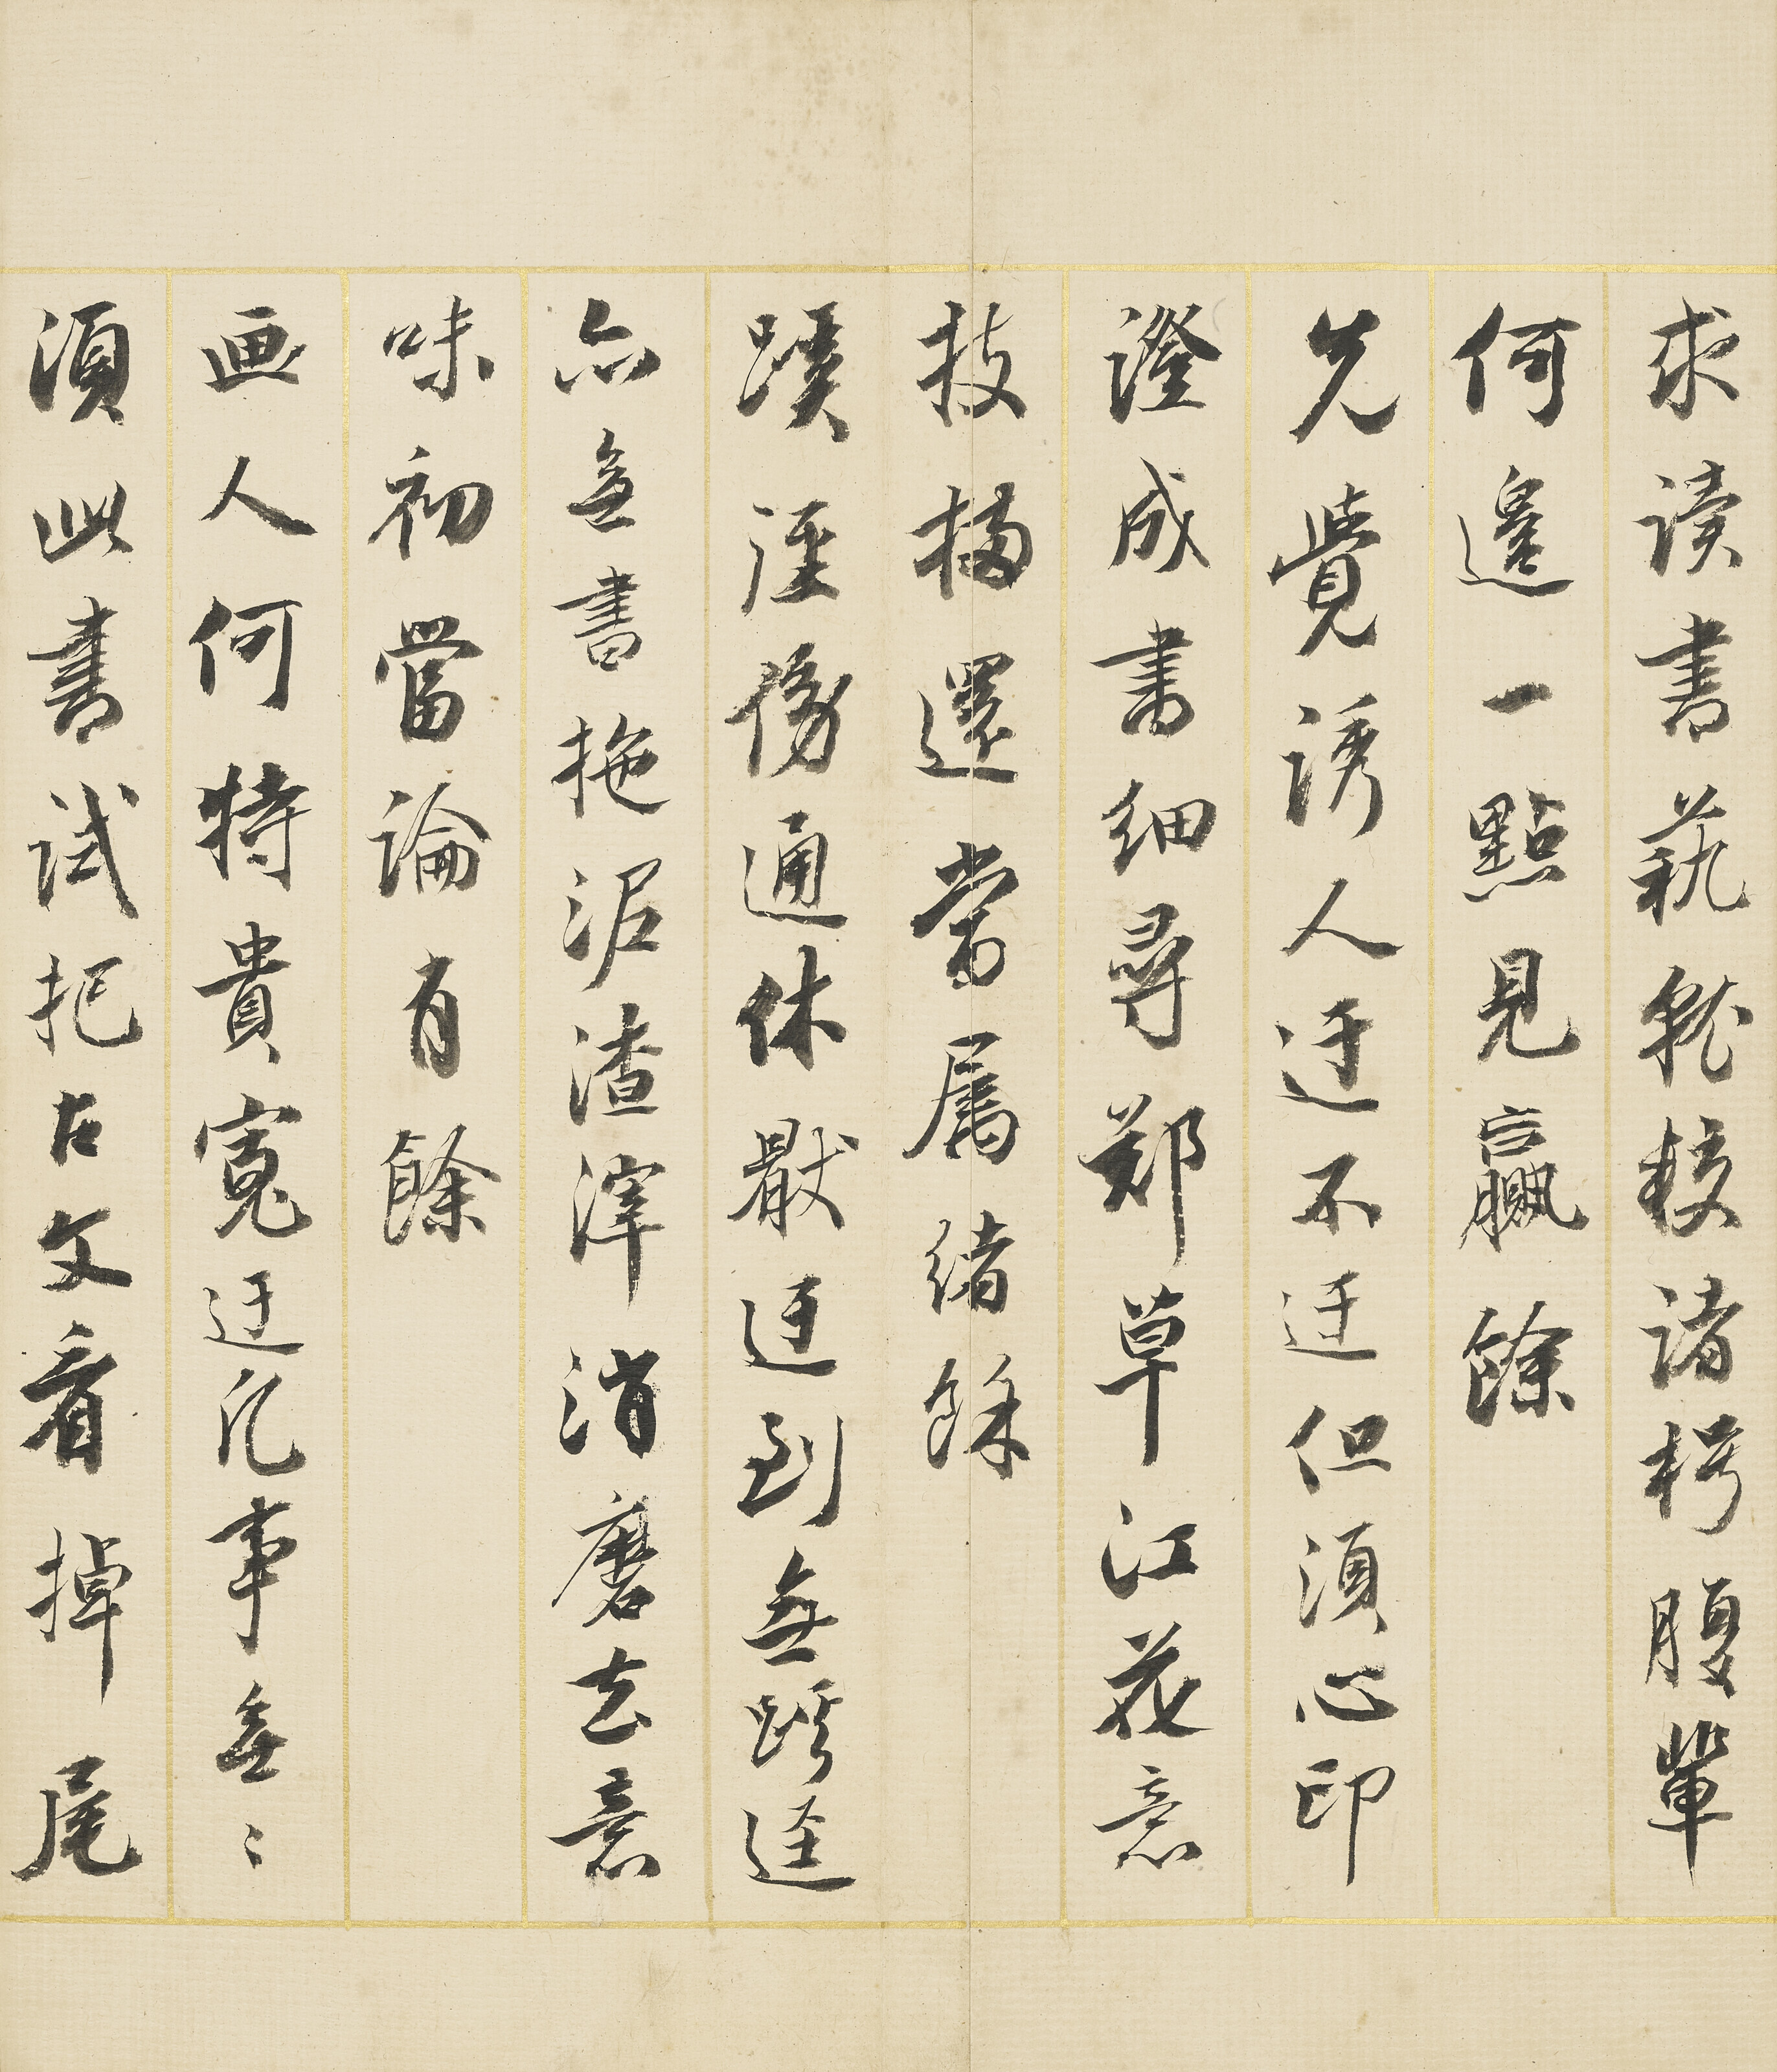 求读書蓺就核諸枵腹輩
何邊一點見贏餘
先覺誘人迂不迂但須心印
證成書細尋鄭草江花意
技播還當屬緒餘
蹼溼傍通休厭迂到無蹊逕
亦無書拖泥渣滓消磨去意
味初當論有餘
画人何特貴寬迂凡事無〻
須此書試把古文看掉尾